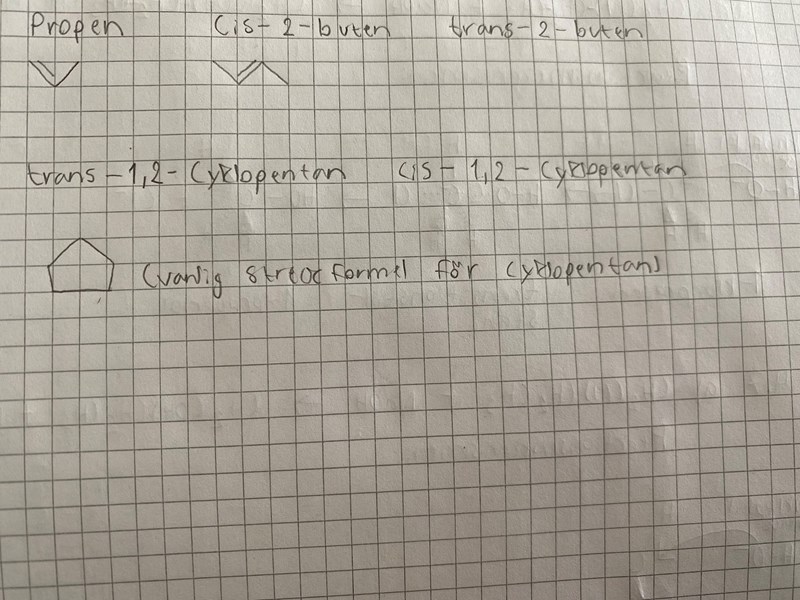 Propen cis-2-buten trans-2-buten
trans-1,2-Cyklopentan cis-1,2-Cyklopentan
(vanlig streckformel för cyklopentan)